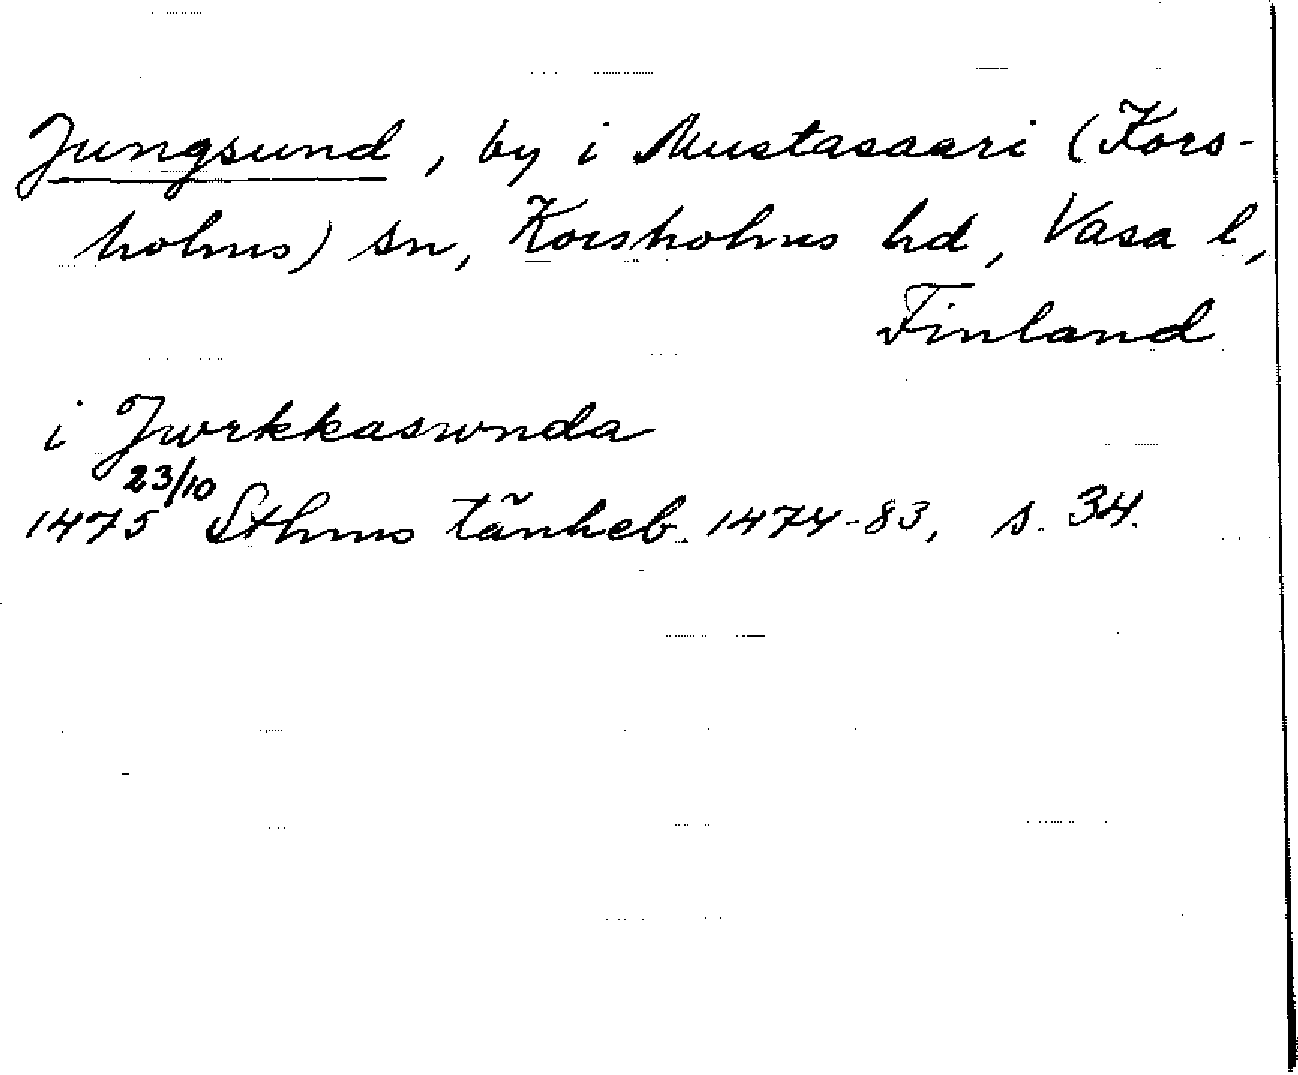 Jungsund, by i Mustasaari (Kors-
holms) sn, Korsholms hd, Vasa l,
Finland
i Jwrkkaswnda
1475 23/10 Sthms tänkeb. 1474-83, s. 34.